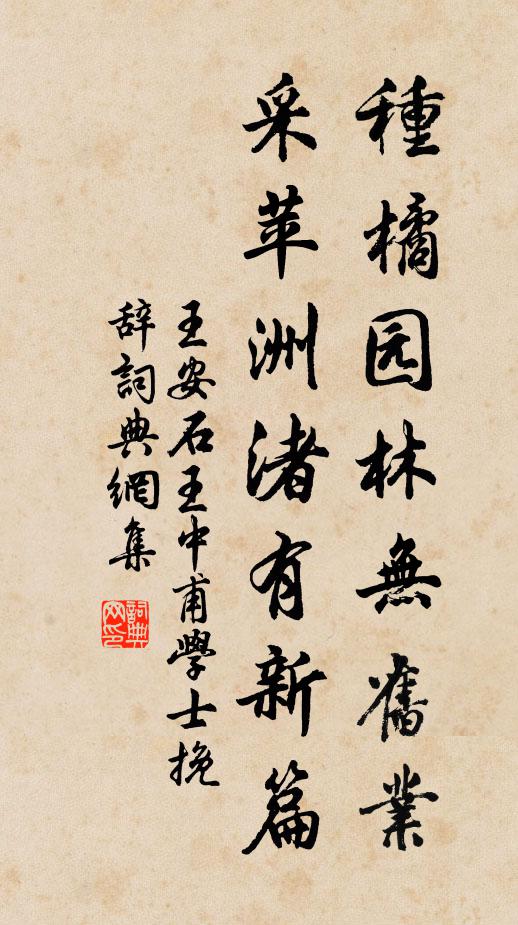 種橘园林無舊業
采苹洲渚有新篇
王安石王中甫學士挽
辞詞典網集
詞典网印